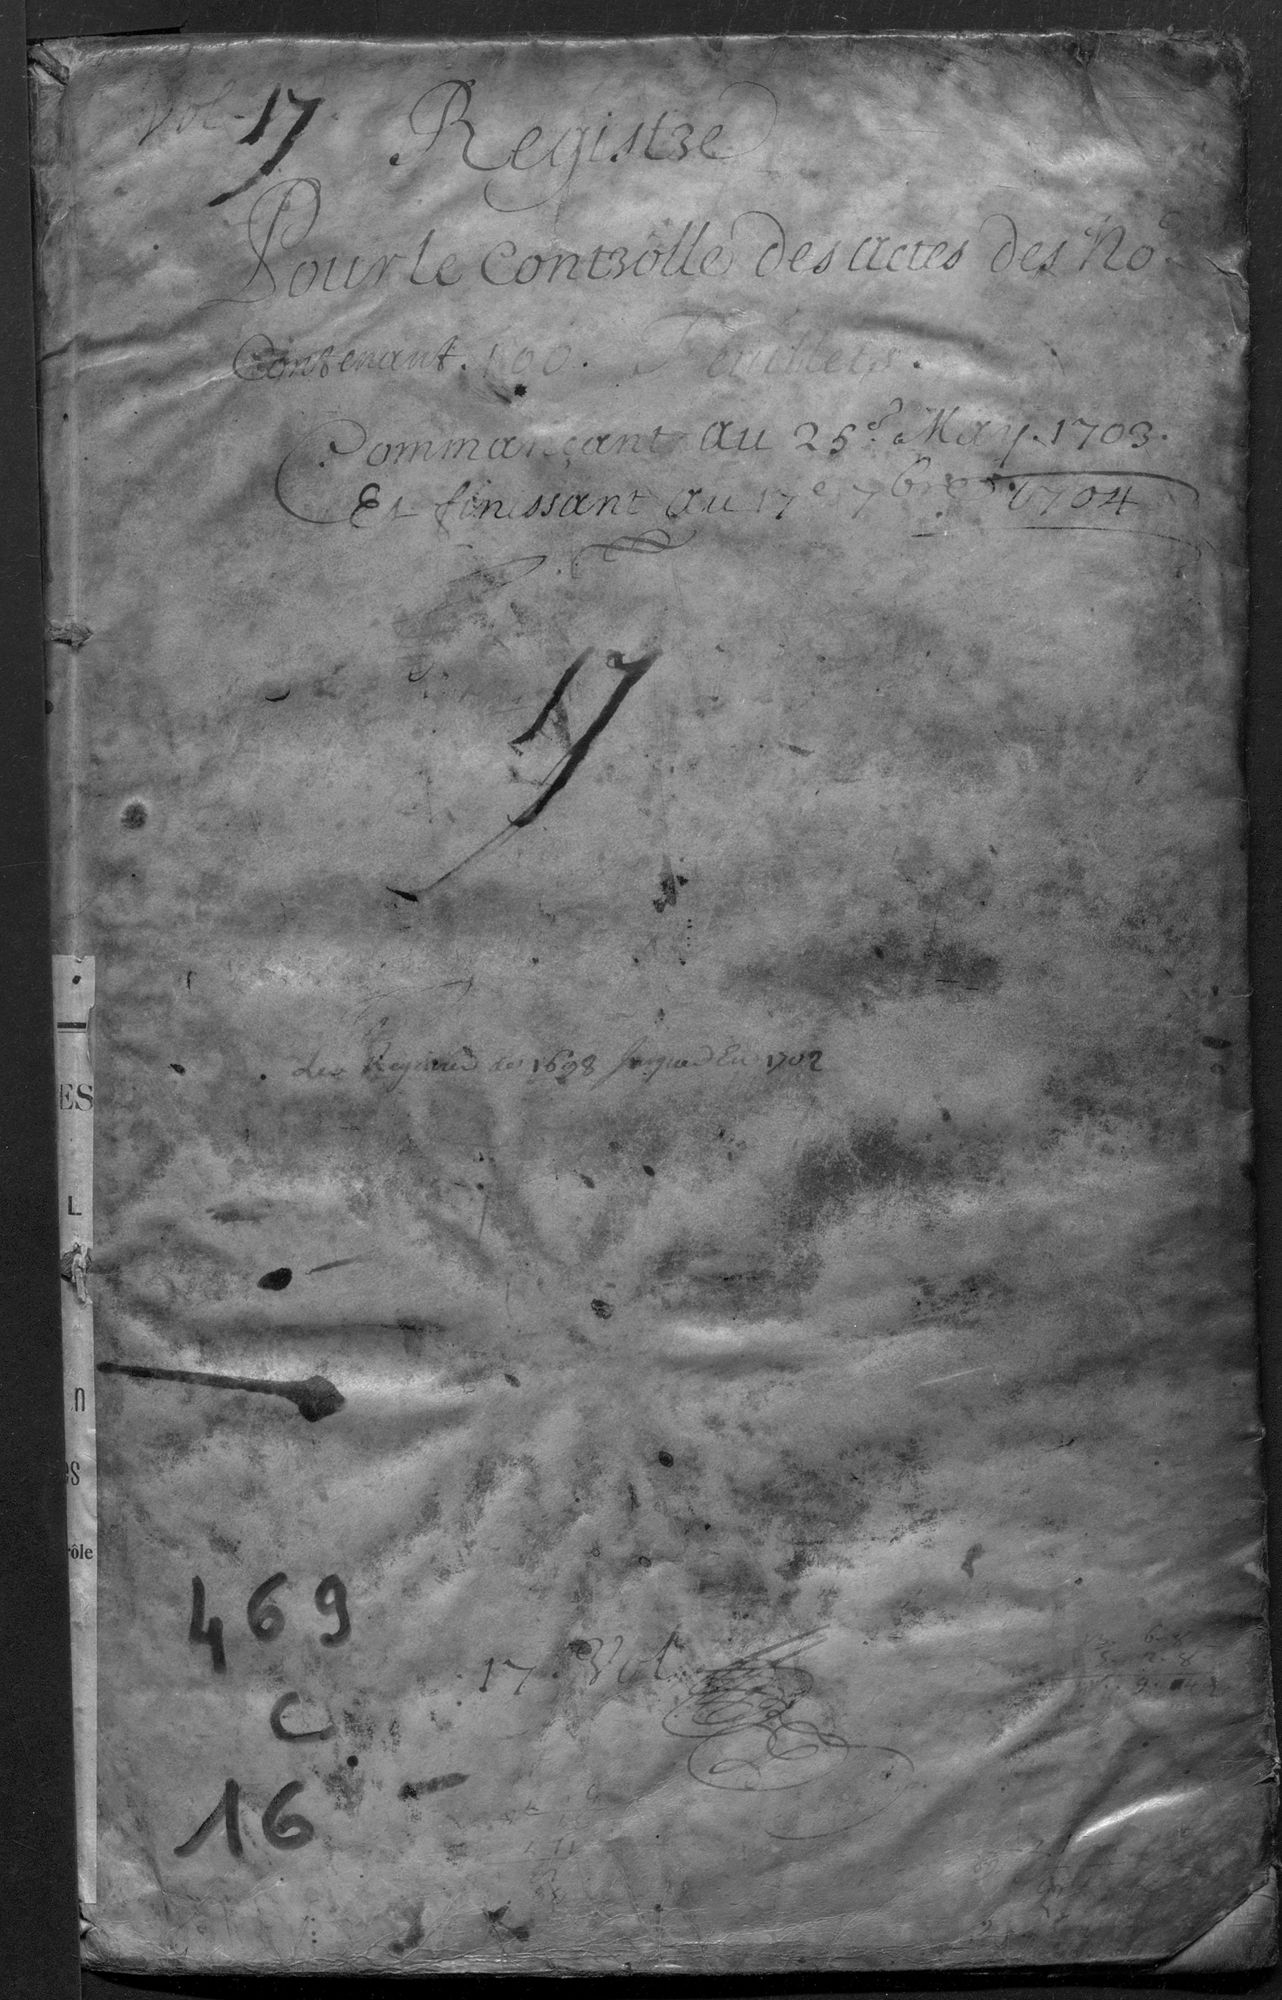 Vol. 17. Registre
Pour le Controlle des actes des No.
Contenant. 100. Feuillets.
Commançant au 25e. May. 1703.
Et finissant au 17e 7bre 1704
17
Les Registres de 1698 jusques En 1702
17. Vol.
469
C
16
ES
L
n
es
rôle